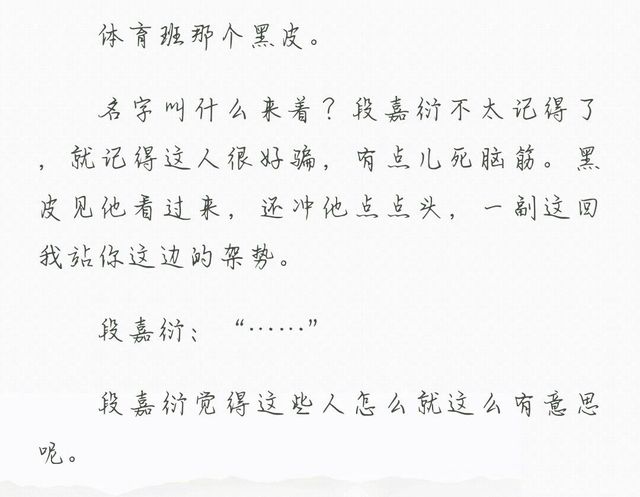 体育班那个黑皮。
名字叫什么来着？段嘉衍不太记得了
，就记得这人很好骗，有点儿死脑筋。黑
皮见他看过来，还冲他点点头，一副这回
我站你这边的架势。
段嘉衍：“……”
段嘉衍觉得这些人怎么就这么有意思
呢。